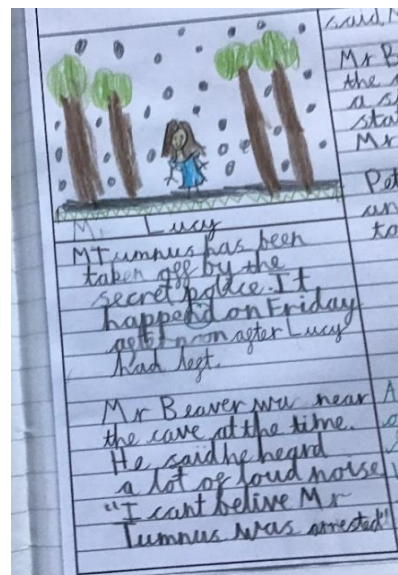 Lucy
M Tumnus has been
taken off by the
secret police. It
happend on Friday
afternoon after Lucy
had left.
Mr Beaver wu near
the cave at the time.
He said he heard
a lot of loud noise
"I cant belive Mr
Tumnus was arrested"
said
Mr B
the s
a s
sta
Mr
Pet
an
to